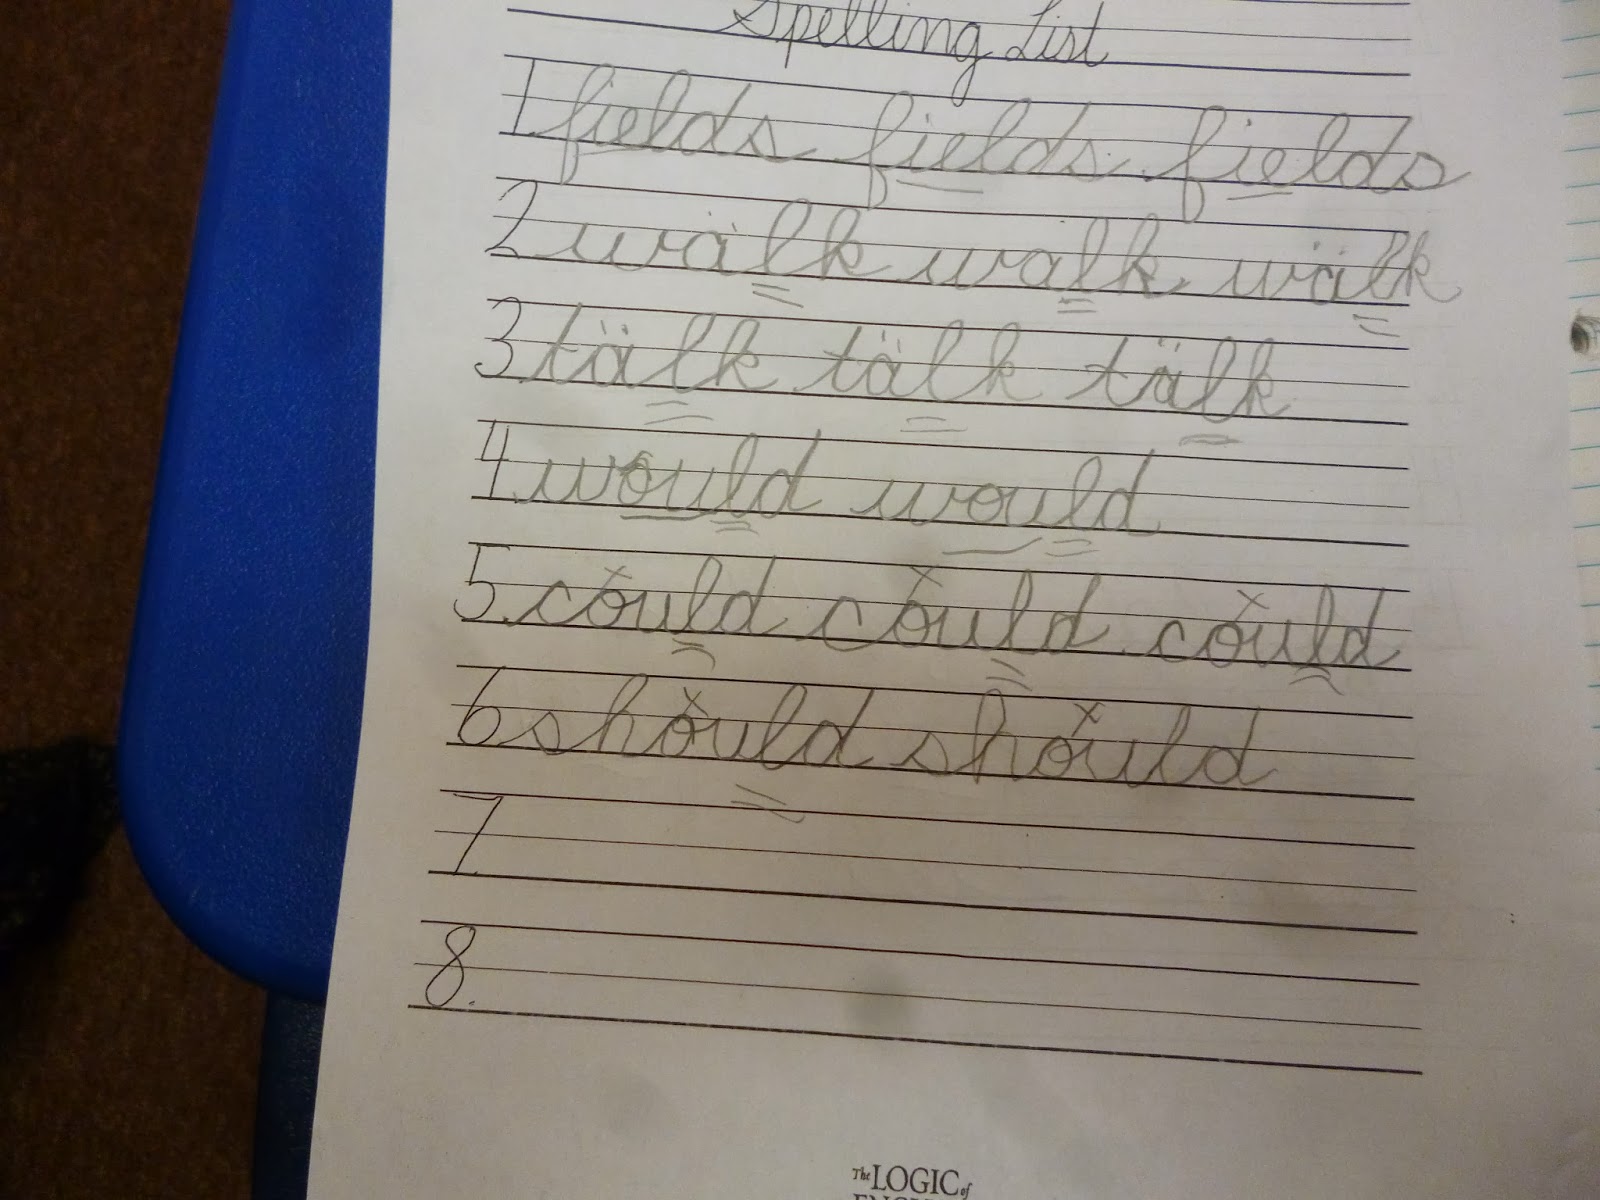 Spelling List
1 fields fields fields
2 wälk walk wälk
3 tälk tälk tälk
4 would would
5. could could could
6 should should
7.
8.
The LOGIC of